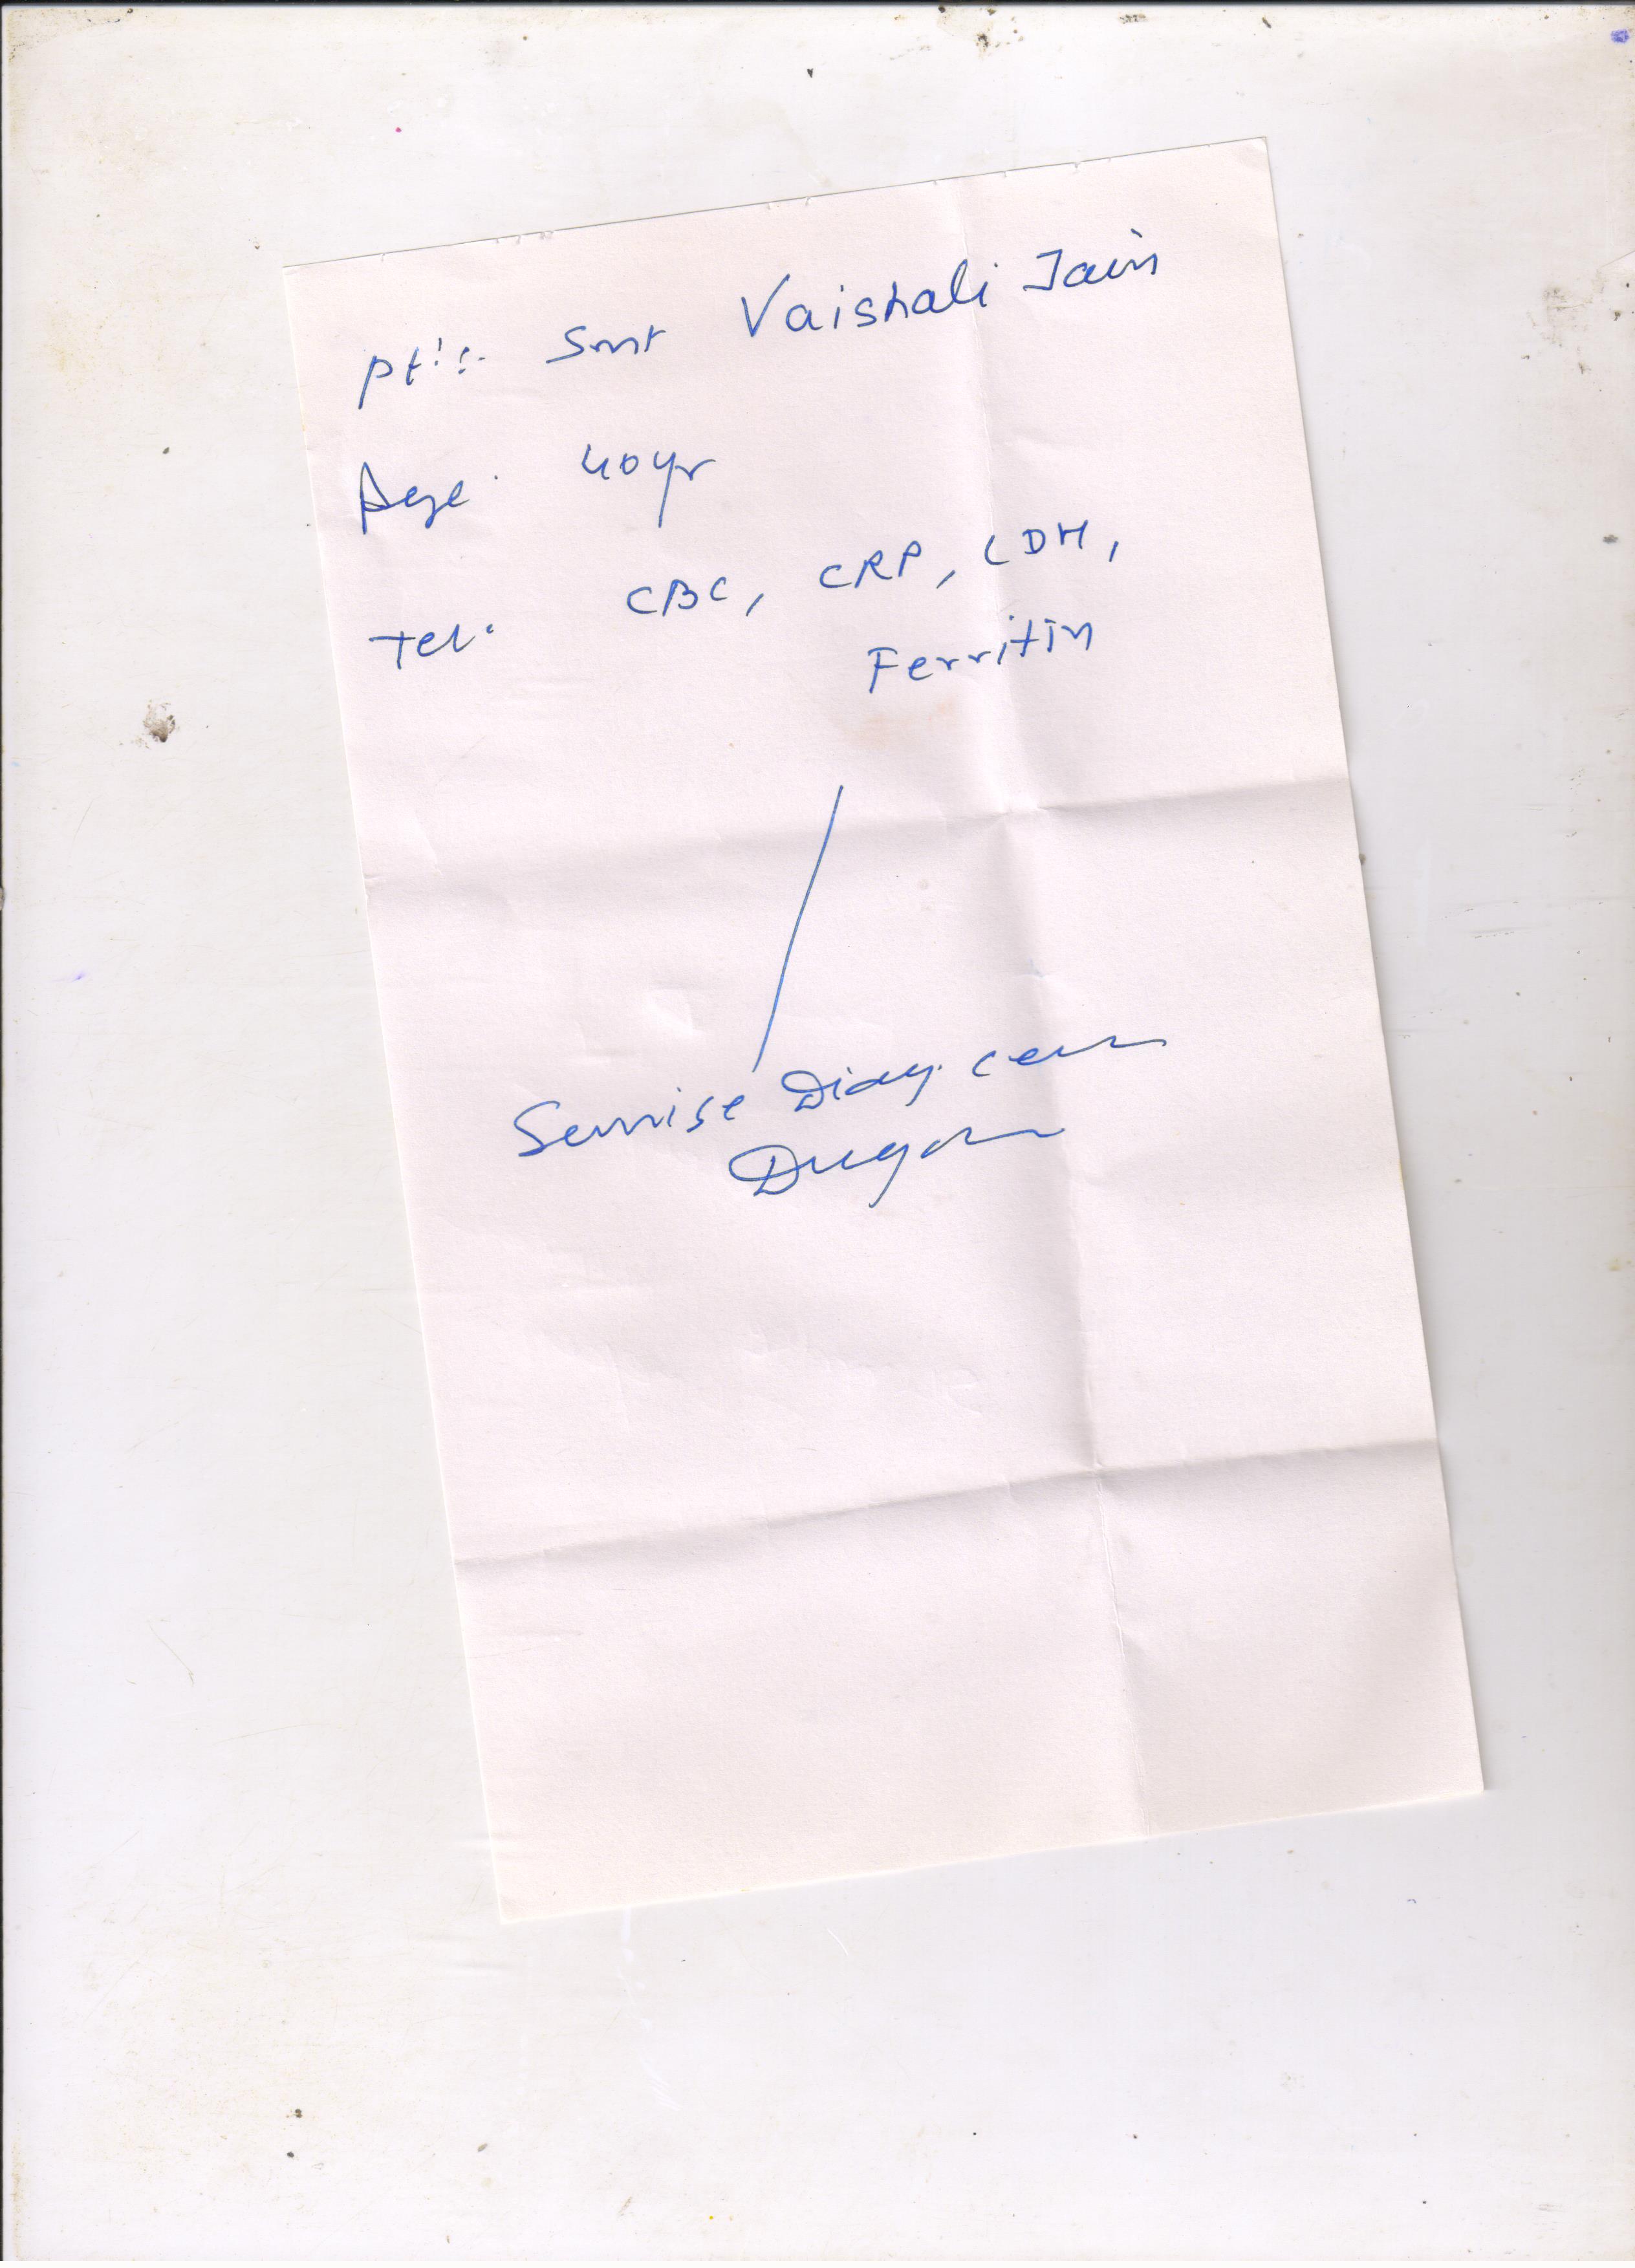 pt:- Smt Vaishali Jain
Age. 40yr
CBC, CRP, LDH,
Tel.
Ferritin
Sunrise Diag. cen